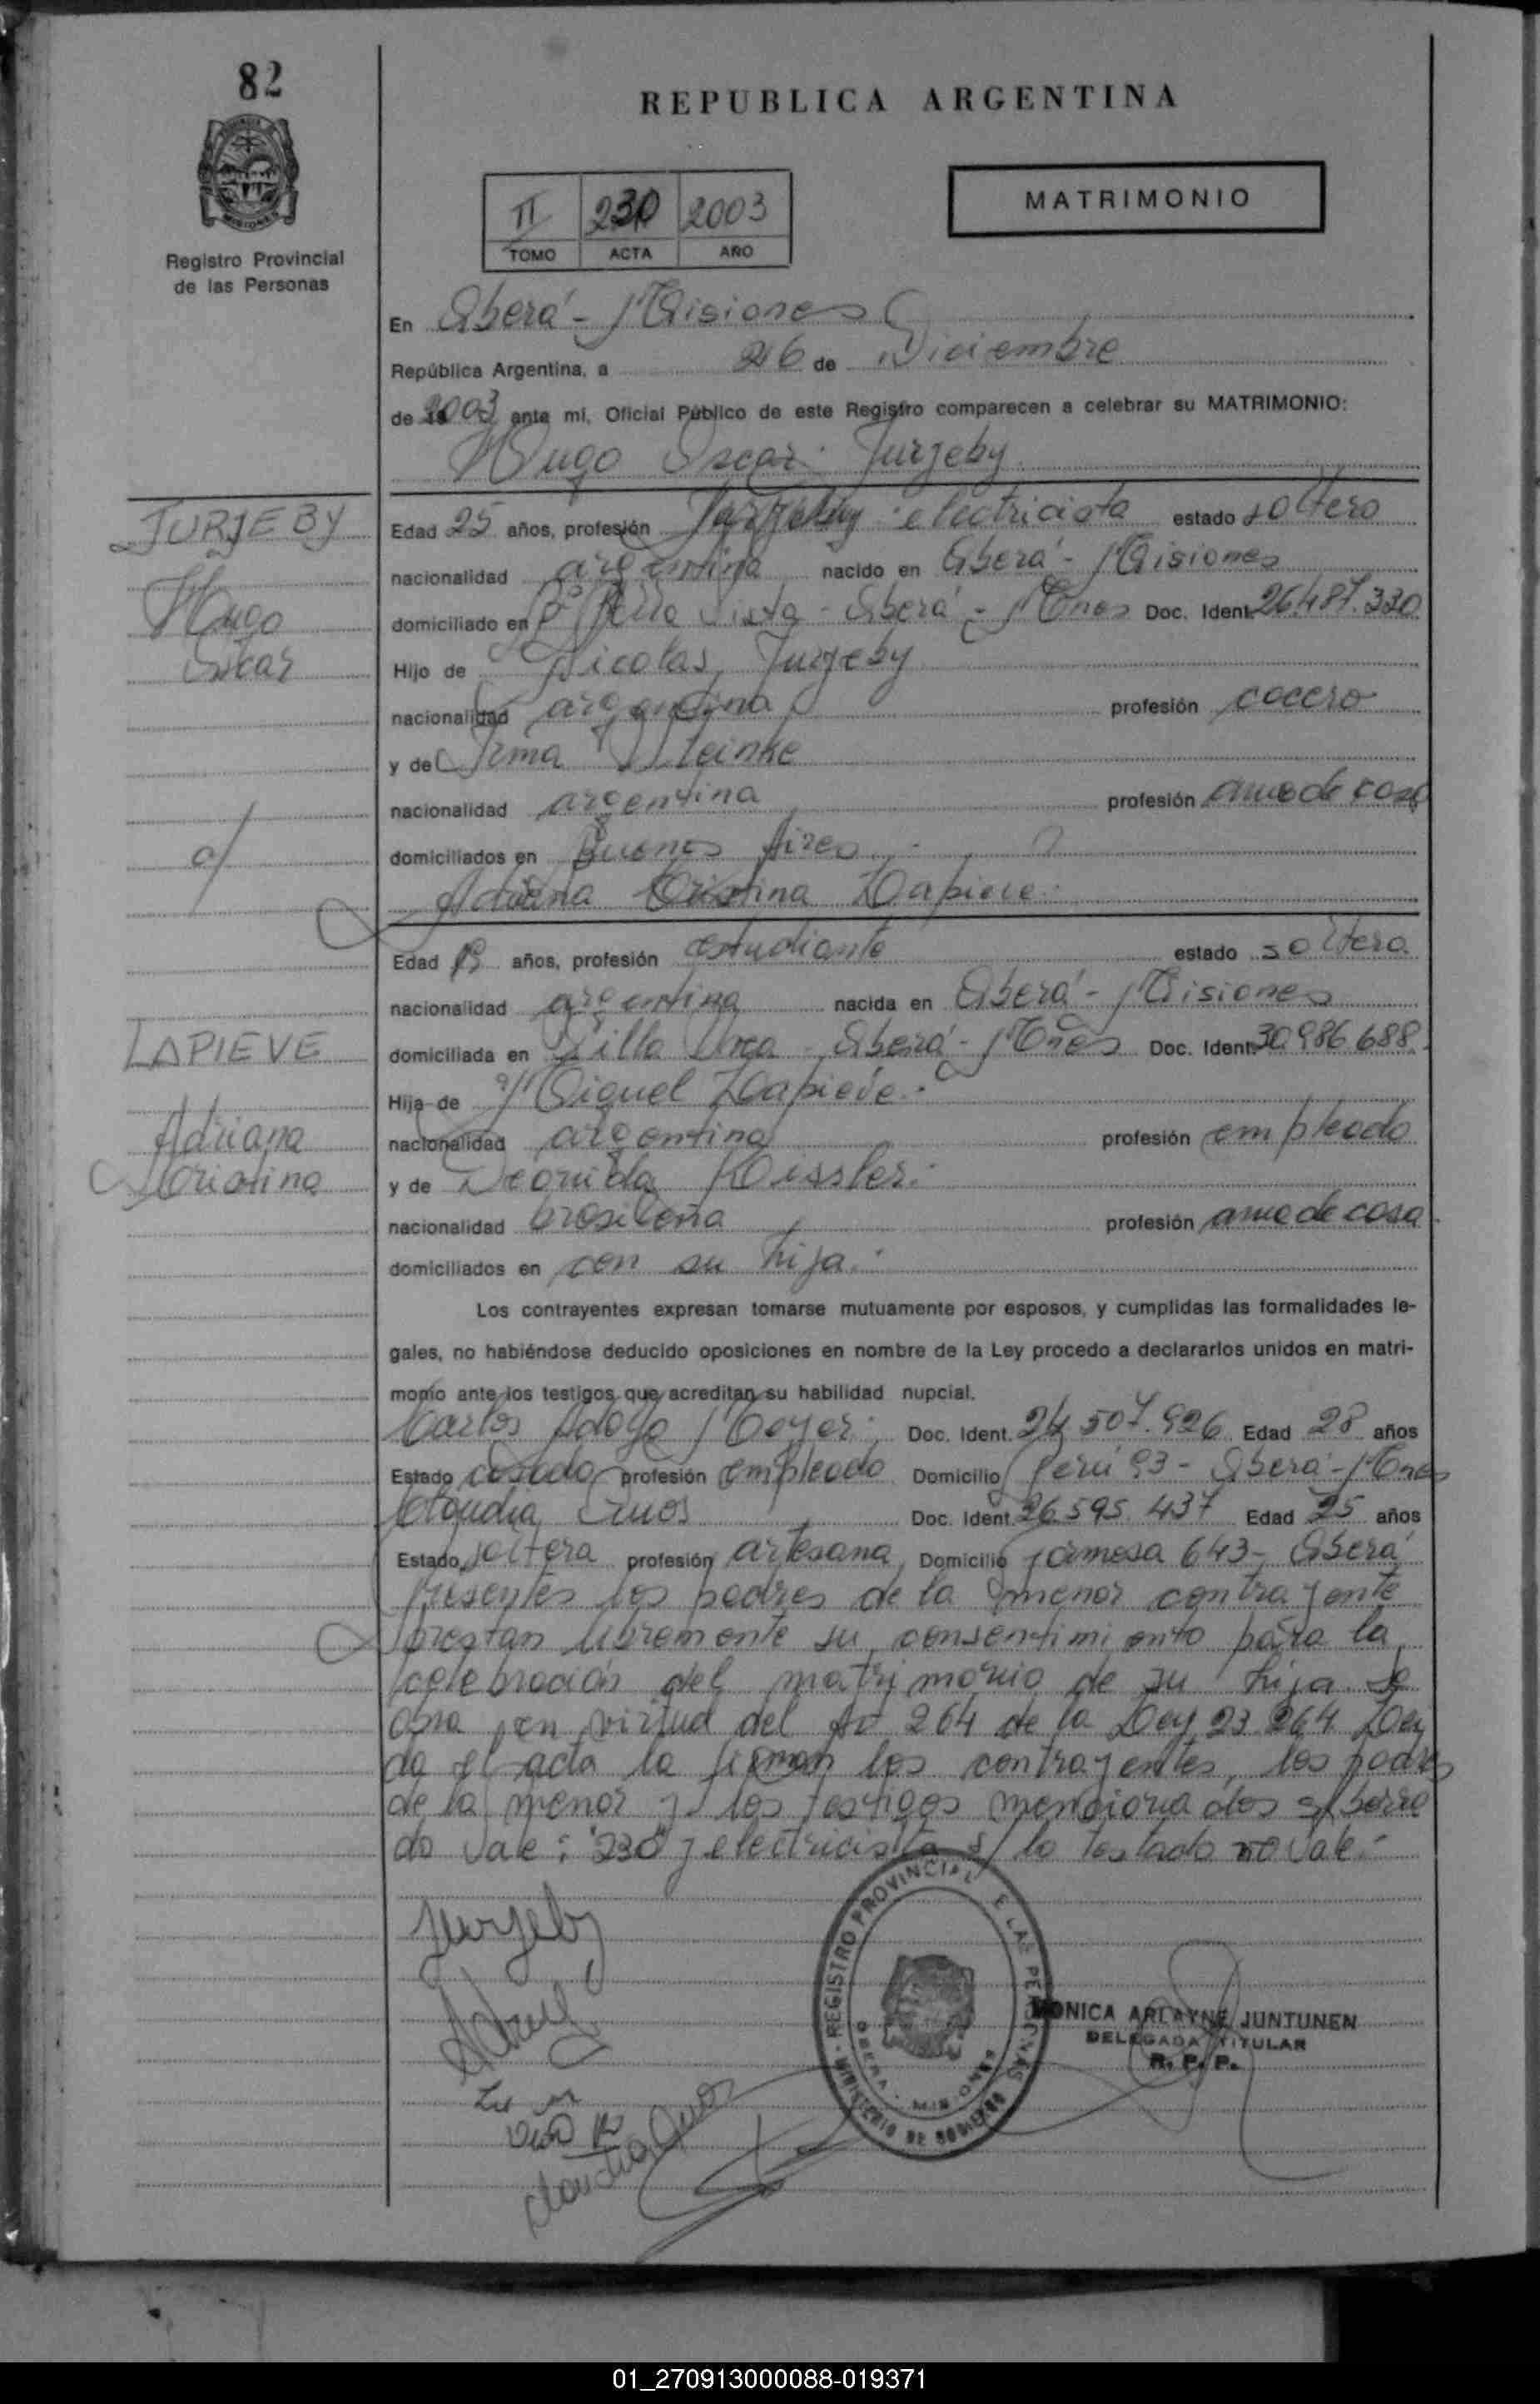 82
REPUBLICA ARGENTINA
MATRIMONIO
II 230 2003
TOMO ACTA AÑO
Registro Provincial
de las Personas
En Oberá - Misiones
República Argentina, a 26 de Diciembre
de 2003 ante mi, Oficial Público de este Registro comparecen a celebrar su MATRIMONIO:
Hugo Oscar Jurjeby
JURJEBY
Hugo
Oscar
Edad 25 años, profesión electricista estado soltero
nacionalidad argentina nacido en Oberá - Misiones
domiciliado en Bella Vista - Oberá - Mnes Doc. Ident. 26.487.330
Hijo de Nicolas Jurjeby
nacionalidad argentina profesión cocero
y de Irma Kleinke
nacionalidad argentina profesión ama de casa
domiciliados en Buenos Aires
c/
Adriana Cristina Lapieve
Edad años, profesión estudiante estado soltera
nacionalidad argentina nacida en Oberá - Misiones
LAPIEVE
Adriana
Cristina
domiciliada en Villa - Oberá - Mnes Doc. Ident. 30.986.688
Hija de Miguel Lapieve.-
nacionalidad argentina profesión empleado
y de Leonilda Kissler.
nacionalidad brasileña profesión ama de casa
domiciliados en con su hija.-
Los contrayentes expresan tomarse mutuamente por esposos, y cumplidas las formalidades le-
gales, no habiéndose deducido oposiciones en nombre de la Ley procedo a declararlos unidos en matri-
monio ante los testigos que acreditan su habilidad nupcial.
Carlos Adolfo Meyer Doc. Ident. 24.507.926 Edad 28 años
Estado casado profesión empleado Domicilio Perú 93 - Oberá - Mnes
Claudia Doc. Ident. 26.595.437 Edad 25 años
Estado soltera profesión artesana Domicilio Formosa 643 - Oberá
Presentes los padres de la menor contrayente
prestan libremente su consentimiento para la
celebración del matrimonio de su hija se
obra en virtud del Art 264 de la Ley 23.264 Leí
da el acta la firman los contrayentes, los padres
de la menor y los testigos mencionados s/borra
do vale: "230" y electricista s/ lo testado no vale.-
Jurjeby
REGISTRO PROVINCIAL DE LAS PERSONAS
MINISTERIO DE GOBIERNO
OBERA - MISIONES
MONICA ARLAYNE JUNTUNEN
DELEGADA TITULAR
R. P. P.
01_270913000088-019371